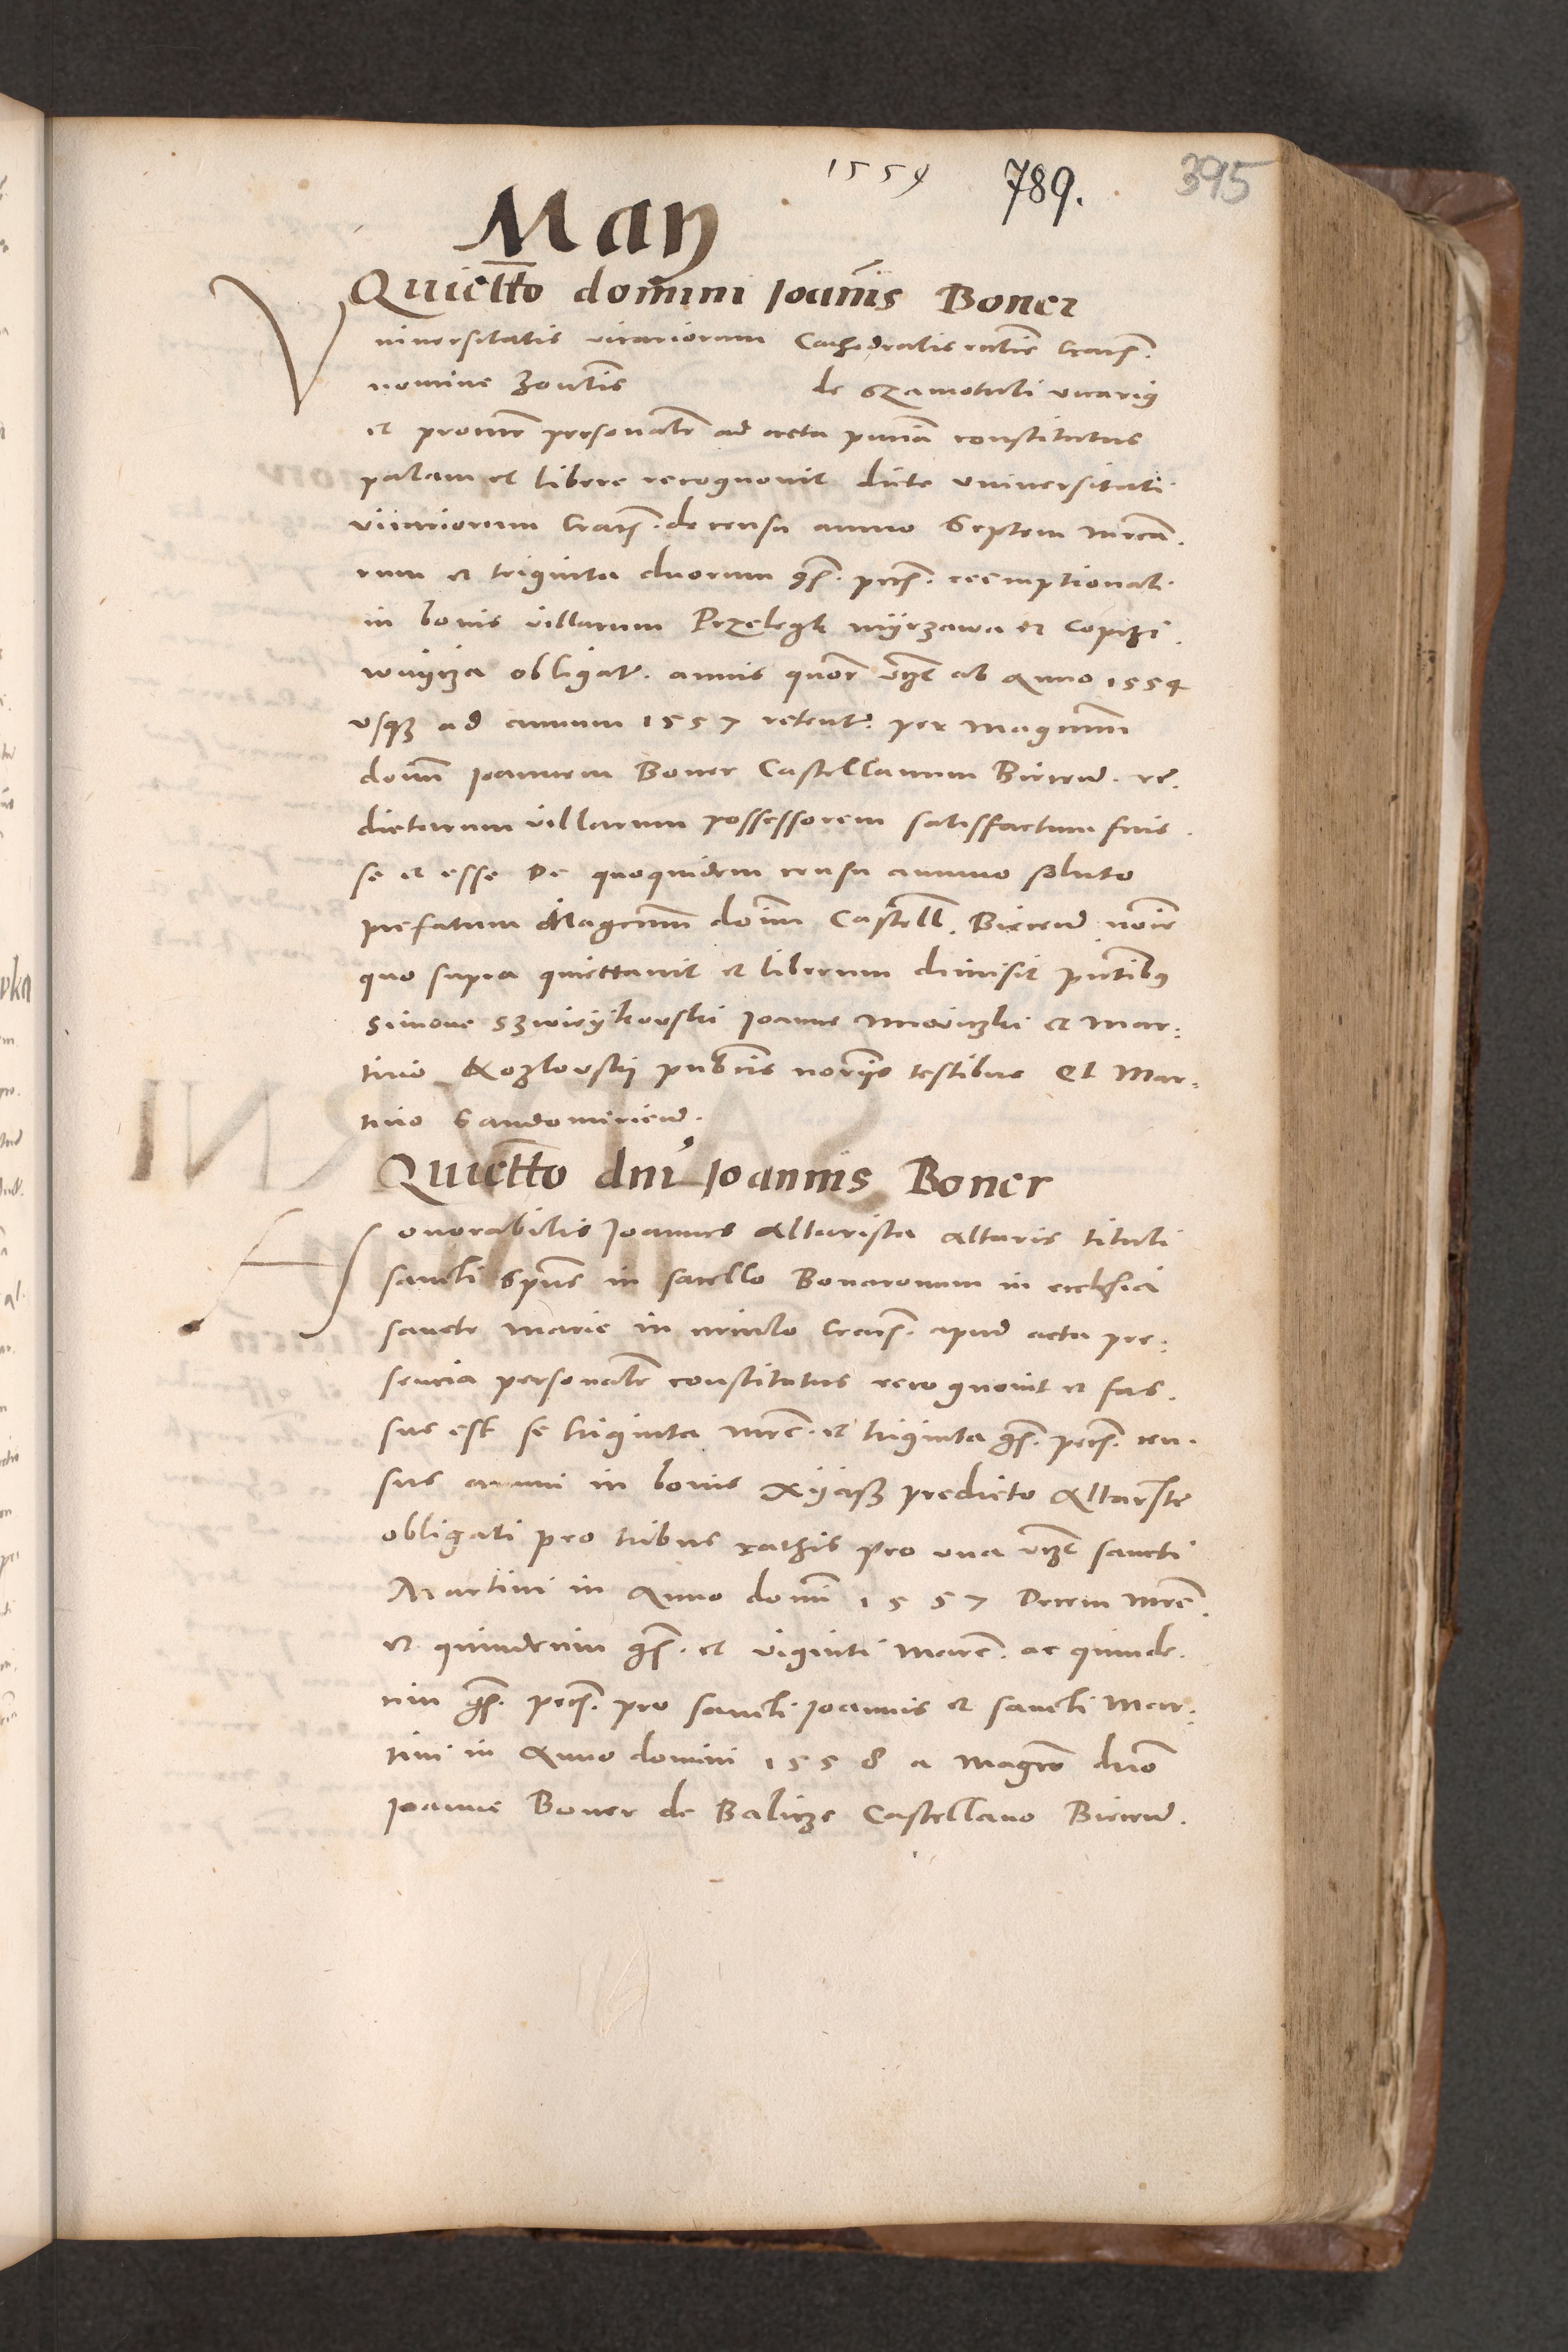 1559 789. 395
Maij
Quietto domini Ioannis Boner
Vniversitatis vicariorum Cathedralis ecclie Cracs.
nomine Zontis de Szamotuli vicarius
et procurr personalr ad acta pntia constitutus
palam et libere recognovit dicte vniversitati
vicariorum Cracs. de censu annuo Septem mrca.
rum et triginta duorum gs. pecs. reemptional.
in bonis villarum Przelegk myrzawa et Copczi.
wnycza obligat. annis quor vzt ab Anno 1554
vsqz ad annum 1557 retent. per Magncum
domn Ioannem Boner Castellanum Biecen. re.
dictarum villarum possessorem satisfactum fuis.
se et esse De quoquidem censu annuo soluto
prefatum Magcum doim Castell. Biecen noie
quo supra quiettavit et liberum dimisit pntibus
Simone Szwirykowski Ioanne et Mar:
tino Kozlovskij publicis notriis testibus Et Mar:
tino Sandomirien.
Quietto dni Ioannis Boner
Honorabilis Ioannes Altarista altaris tituli
sancti Spus in sacello Bonaronum in ecclesia
sancte Marie in circulo Cracs. apud acta pre:
sencia personalr constitutus recognovit et fas.
sus est se triginta mrc. et triginta gs. pecs. cen.
sus annui in bonis Xijasz predicto Altariste
obligati pro tribus rathis pro vna vzt sancti
Martini in Anno domi 1557 Decem mrc.
et quindecim gs. et viginti marc. ac quinde.
cim gs. pecs. pro sancti Ioannis et sancti Mar:
tini in Anno domini 1558 a Magco dno
Ioanne Boner de Balicze Castellano Biecen.